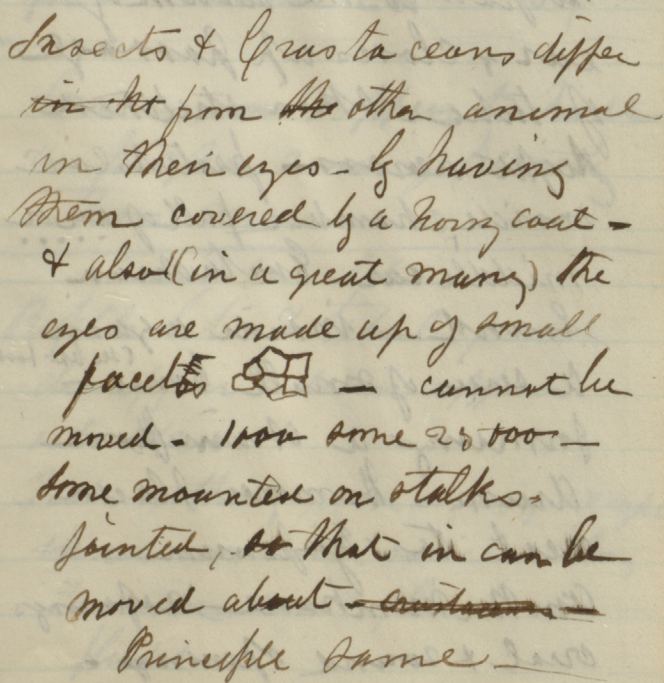 Insects & Crustaceans differ
in ht from the other animal
in their eyes - by having
them covered by a horny coat -
& also (in a great many) the
eyes are made up of small
facets — cannot be
moved - 1000 some 25000 —
some mounted on stalks -
jointed, so that in can be
moved about - crustaceans —
Principle same —